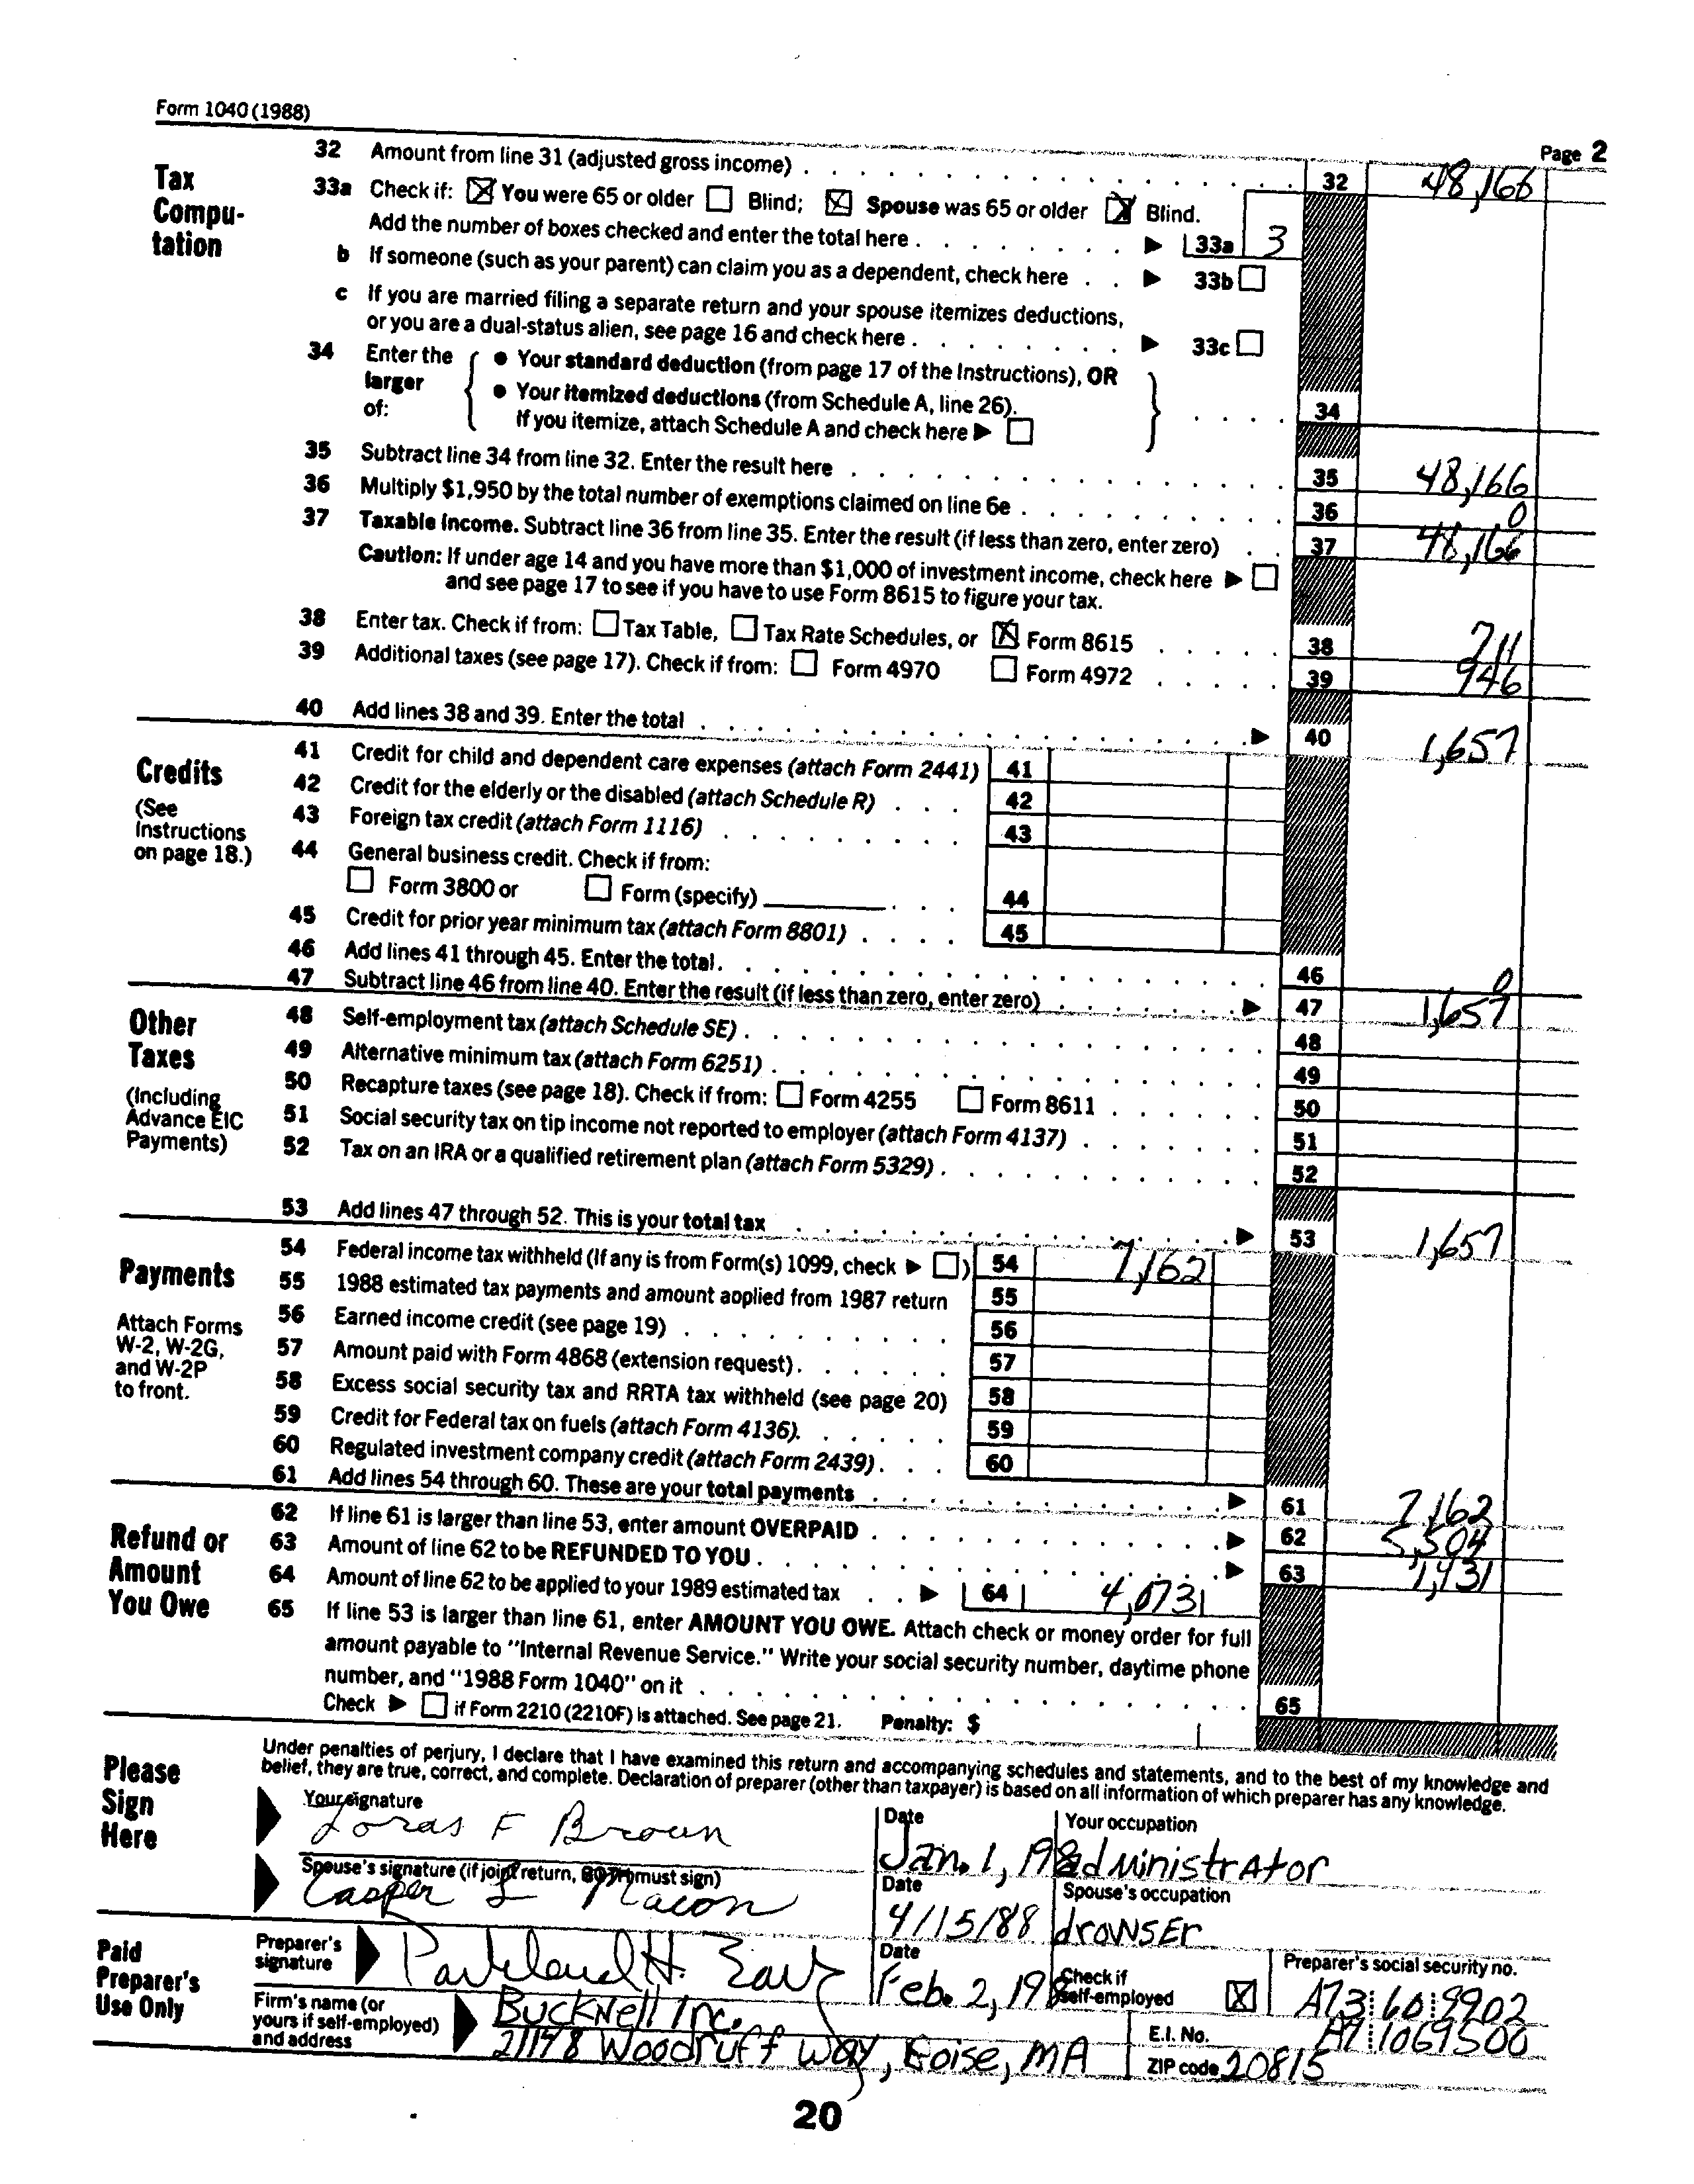 Form 1040 (1988)
Page 2
Tax Compu-tation
32 Amount from line 31 (adjusted gross income) 32 48,166
33a Check if: ☒ You were 65 or older ☐ Blind; ☒ Spouse was 65 or older ☒ Blind.
Add the number of boxes checked and enter the total here ▶ 33a 3
b If someone (such as your parent) can claim you as a dependent, check here ▶ 33b ☐
c If you are married filing a separate return and your spouse itemizes deductions,
or you are a dual-status alien, see page 16 and check here ▶ 33c ☐
34 Enter the larger of:
• Your standard deduction (from page 17 of the Instructions), OR
• Your itemized deductions (from Schedule A, line 26).
If you itemize, attach Schedule A and check here ▶ ☐ 34
35 Subtract line 34 from line 32. Enter the result here 35 48,166
36 Multiply $1,950 by the total number of exemptions claimed on line 6e 36 0
37 Taxable income. Subtract line 36 from line 35. Enter the result (if less than zero, enter zero) 37 48,166
Caution: If under age 14 and you have more than $1,000 of investment income, check here ▶ ☐
and see page 17 to see if you have to use Form 8615 to figure your tax.
38 Enter tax. Check if from: ☐ Tax Table, ☐ Tax Rate Schedules, or ☒ Form 8615 38 711
39 Additional taxes (see page 17). Check if from: ☐ Form 4970 ☐ Form 4972 39 946
40 Add lines 38 and 39. Enter the total ▶ 40 1,657
Credits
(See Instructions on page 18.)
41 Credit for child and dependent care expenses (attach Form 2441) 41
42 Credit for the elderly or the disabled (attach Schedule R) 42
43 Foreign tax credit (attach Form 1116) 43
44 General business credit. Check if from:
☐ Form 3800 or ☐ Form (specify) 44
45 Credit for prior year minimum tax (attach Form 8801) 45
46 Add lines 41 through 45. Enter the total. 46 0
47 Subtract line 46 from line 40. Enter the result (if less than zero, enter zero) ▶ 47 1,657
Other Taxes
(Including Advance EIC Payments)
48 Self-employment tax (attach Schedule SE) 48
49 Alternative minimum tax (attach Form 6251) 49
50 Recapture taxes (see page 18). Check if from: ☐ Form 4255 ☐ Form 8611 50
51 Social security tax on tip income not reported to employer (attach Form 4137) 51
52 Tax on an IRA or a qualified retirement plan (attach Form 5329) 52
53 Add lines 47 through 52. This is your total tax ▶ 53 1,657
Payments
Attach Forms W-2, W-2G, and W-2P to front.
54 Federal income tax withheld (If any is from Form(s) 1099, check ▶ ☐) 54 7,162
55 1988 estimated tax payments and amount applied from 1987 return 55
56 Earned income credit (see page 19) 56
57 Amount paid with Form 4868 (extension request) 57
58 Excess social security tax and RRTA tax withheld (see page 20) 58
59 Credit for Federal tax on fuels (attach Form 4136). 59
60 Regulated investment company credit (attach Form 2439) 60
61 Add lines 54 through 60. These are your total payments ▶ 61 7,162
Refund or Amount You Owe
62 If line 61 is larger than line 53, enter amount OVERPAID ▶ 62 5,504
63 Amount of line 62 to be REFUNDED TO YOU ▶ 63 1,431
64 Amount of line 62 to be applied to your 1989 estimated tax ▶ 64 4,073
65 If line 53 is larger than line 61, enter AMOUNT YOU OWE. Attach check or money order for full
amount payable to "Internal Revenue Service." Write your social security number, daytime phone
number, and "1988 Form 1040" on it 65
Check ▶ ☐ if Form 2210 (2210F) is attached. See page 21. Penalty: $
Please Sign Here
Under penalties of perjury, I declare that I have examined this return and accompanying schedules and statements, and to the best of my knowledge and
belief, they are true, correct, and complete. Declaration of preparer (other than taxpayer) is based on all information of which preparer has any knowledge.
Your signature Loras F Brown
Date Jan. 1, 198
Your occupation administrator
Spouse's signature (if joint return, BOTH must sign) Casper L Macon
Date 4/15/88
Spouse's occupation drowsEr
Paid Preparer's Use Only
Preparer's signature Parkland H.
Date Feb. 2, 198
Check if self-employed ☒
Preparer's social security no. A73 60 9902
Firm's name (or yours if self-employed) and address Bucknell Inc.
Woodruff Way, Boise, MA
E.I. No. A7 1069500
ZIP code 20815
20